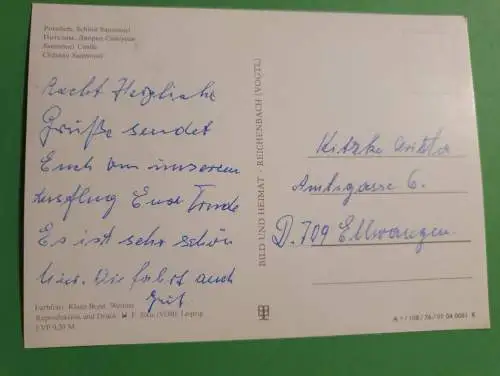 Potsdam, Schloß Sanssouci
Потсдам. Дворец Сансуси
Sanssouci Castle
Château Sanssouci
Recht Herzliche
Grüße sendet
Euch von unserem
Ausflug Eure Trude
Es ist sehr schön
hier. Die Fahrt auch
gut
Farbfoto: Klaus Beyer, Weimar
Reproduktion und Druck: F. (VOB), Leipzig
EVP 0,20 M
BILD UND HEIMAT · REICHENBACH (VOGTL)
Kitzke
Amtsgasse 6.
D. 709 Ellwangen